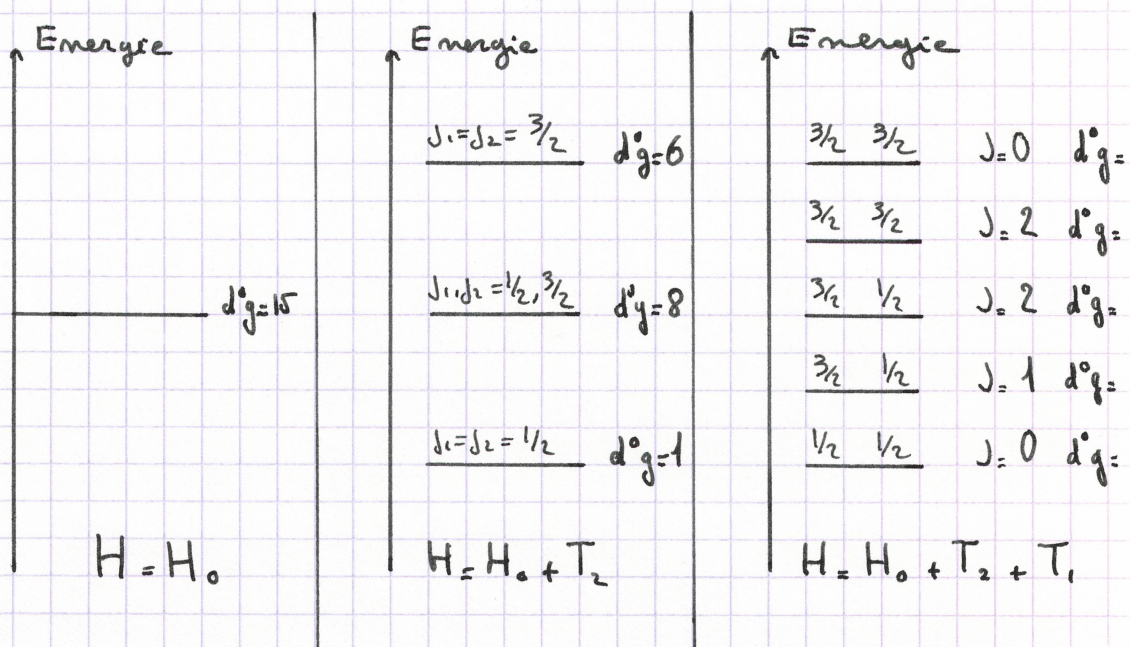 Energie
d°g=15
H = H₀
Energie
J₁=J₂= 3/2 d°g=6
J₁,J₂ =1/2, 3/2 d°g=8
J₁=J₂ = 1/2 d°g=1
H = H₀ + T₂
Energie
3/2 3/2 J=0 d°g=
3/2 3/2 J=2 d°g=
3/2 1/2 J=2 d°g=
3/2 1/2 J=1 d°g=
1/2 1/2 J=0 d°g=
H = H₀ + T₂ + T₁